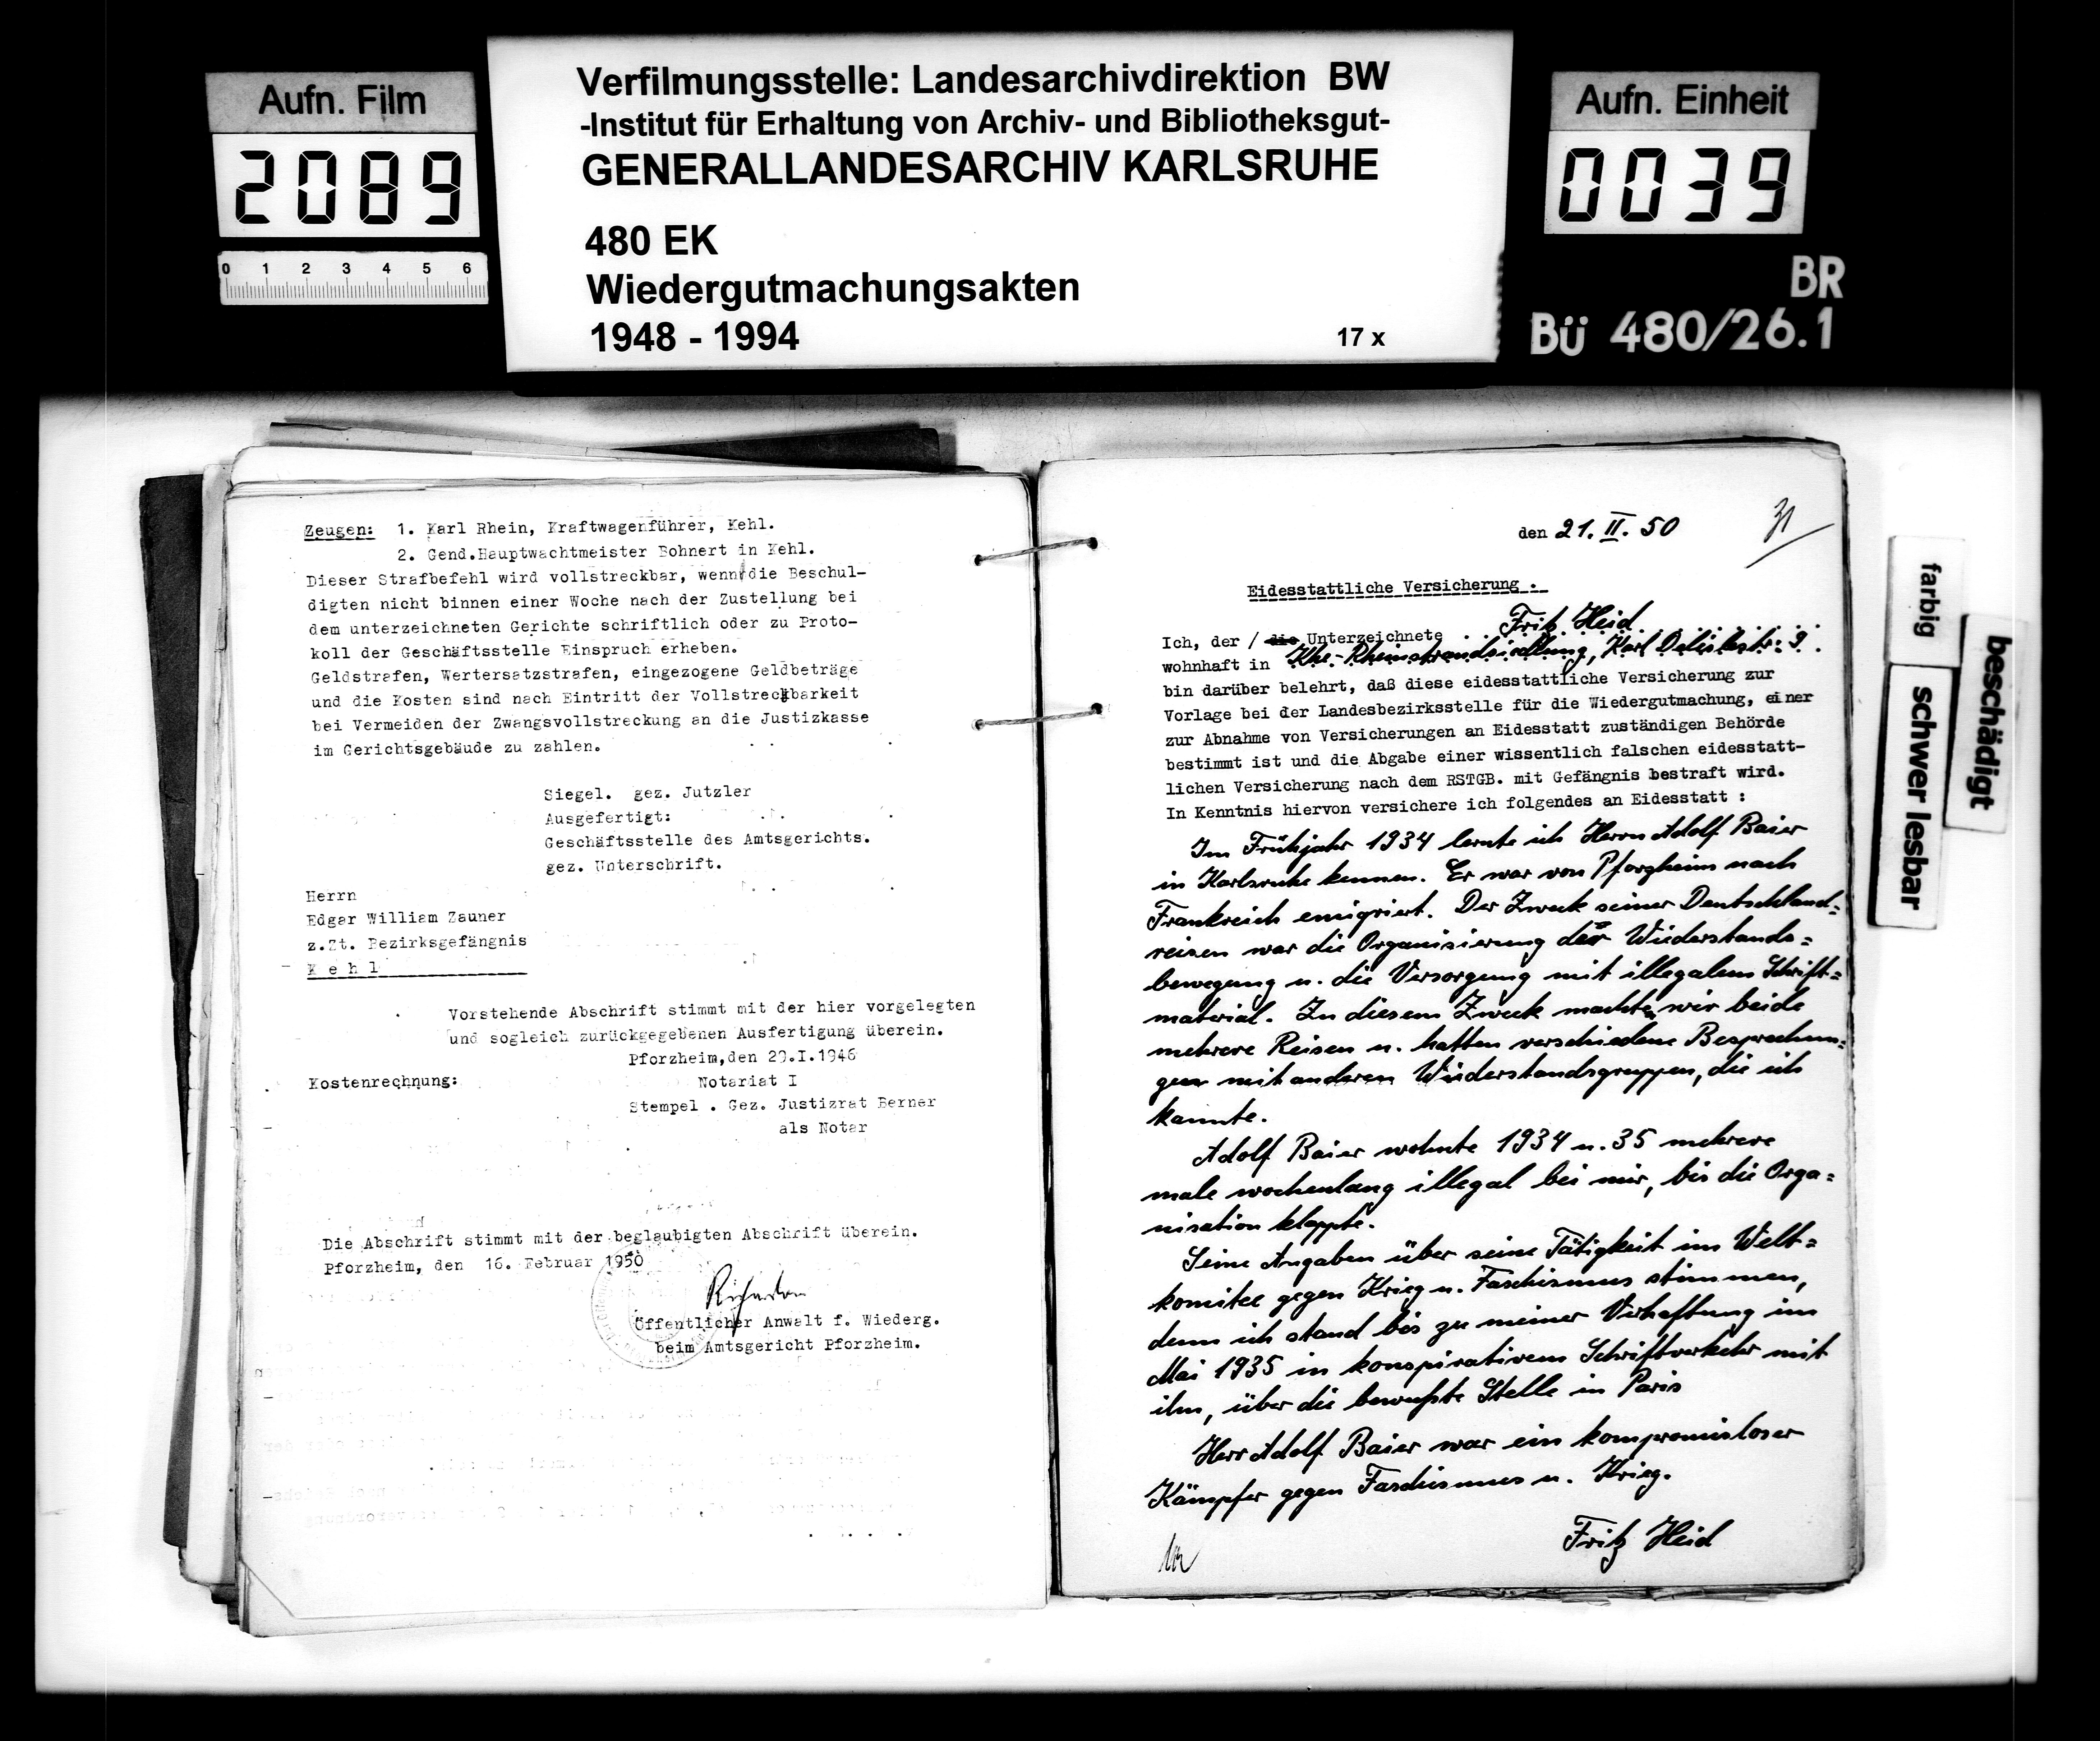 Aufn. Film
2089
0 1 2 3 4 5 6
Verfilmungsstelle: Landesarchivdirektion BW
-Institut für Erhaltung von Archiv- und Bibliotheksgut-
GENERALLANDESARCHIV KARLSRUHE
480 EK
Wiedergutmachungsakten
1948 - 1994
17 x
Aufn. Einheit
0039
BR
Bü 480/26.1
Zeugen: 1. Karl Rhein, Kraftwagenführer, Kehl.
2. Gend.Hauptwachtmeister Bohnert in Kehl.
Dieser Strafbefehl wird vollstreckbar, wenn die Beschul-
digten nicht binnen einer Woche nach der Zustellung bei
dem unterzeichneten Gerichte schriftlich oder zu Proto-
koll der Geschäftsstelle Einspruch erheben.
Geldstrafen, Wertersatzstrafen, eingezogene Geldbeträge
und die Kosten sind nach Eintritt der Vollstreckbarkeit
bei Vermeiden der Zwangsvollstreckung an die Justizkasse
im Gerichtsgebäude zu zahlen.
Siegel. gez. Jutzler
Ausgefertigt:
Geschäftsstelle des Amtsgerichts.
gez. Unterschrift.
Herrn
Edgar William Zauner
z.Zt. Bezirksgefängnis
K e h l
Vorstehende Abschrift stimmt mit der hier vorgelegten
und sogleich zurückgegebenen Ausfertigung überein.
Pforzheim,den 29.I.1946
Kostenrechnung: Notariat I
Stempel . Gez. Justizrat Berner
als Notar
Die Abschrift stimmt mit der beglaubigten Abschrift überein.
Pforzheim, den 16. Februar 1950
Öffentlicher Anwalt f. Wiederg.
beim Amtsgericht Pforzheim.
31
den 21. II. 50
Eidesstattliche Versicherung .
Ich, der / die Unterzeichnete Fritz Heid
wohnhaft in Khe-Rheinstrandsiedlung, Karl Delislestr. 9
bin darüber belehrt, daß diese eidesstattliche Versicherung zur
Vorlage bei der Landesbezirksstelle für die Wiedergutmachung, einer
zur Abnahme von Versicherungen an Eidesstatt zuständigen Behörde
bestimmt ist und die Abgabe einer wissentlich falschen eidesstatt-
lichen Versicherung nach dem RSTGB. mit Gefängnis bestraft wird.
In Kenntnis hiervon versichere ich folgendes an Eidesstatt :
Im Frühjahr 1934 lernte ich Herrn Adolf Baier
in Karlsruhe kennen. Er war von Pforzheim nach
Frankreich emigriert. Der Zweck seiner Deutschland=
reisen war die Organisierung der Widerstands=
bewegung u. die Versorgung mit illegalem Schrift=
material. Zu diesem Zweck machten wir beide
mehrere Reisen u. hatten verschiedene Besprechun=
gen mit anderen Widerstandsgruppen, die ich
kannte.
Adolf Baier wohnte 1934 u. 35 mehrere
male wochenlang illegal bei mir, bis die Orga=
nisation klappte.
Seine Angaben über seine Tätigkeit im Welt=
komitee gegen Krieg u. Faschismus stimmen,
denn ich stand bis zu meiner Verhaftung im
Mai 1935 in konspirativem Schriftverkehr mit
ihm, über die bewußte Stelle in Paris
Herr Adolf Baier war ein kompromissloser
Kämpfer gegen Faschismus u. Krieg.
Fritz Heid
farbig
schwer lesbar
beschädigt